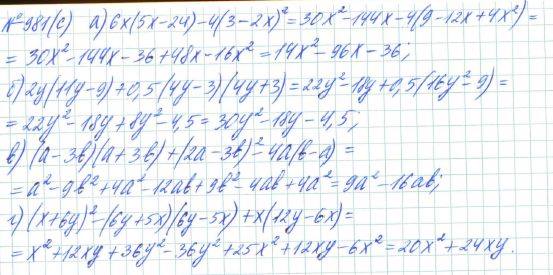 № 981(с) а) 6x(5x-24)-4(3-2x)²=30x²-144x-4(9-12x+4x²)=
=30x²-144x-36+48x-16x²=14x²-96x-36;
б) 2y(11y-9)+0,5(4y-3)(4y+3)=22y²-18y+0,5(16y²-9)=
=22y²-18y+8y²-4,5=30y²-18y-4,5;
в) (a-3b)(a+3b)+(2a-3b)²-4a(b-a)=
=a²-9b²+4a²-12ab+9b²-4ab+4a²=9a²-16ab;
г) (x+6y)²-(6y+5x)(6y-5x)+x(12y-6x)=
=x²+12xy+36y²-36y²+25x²+12xy-6x²=20x²+24xy.